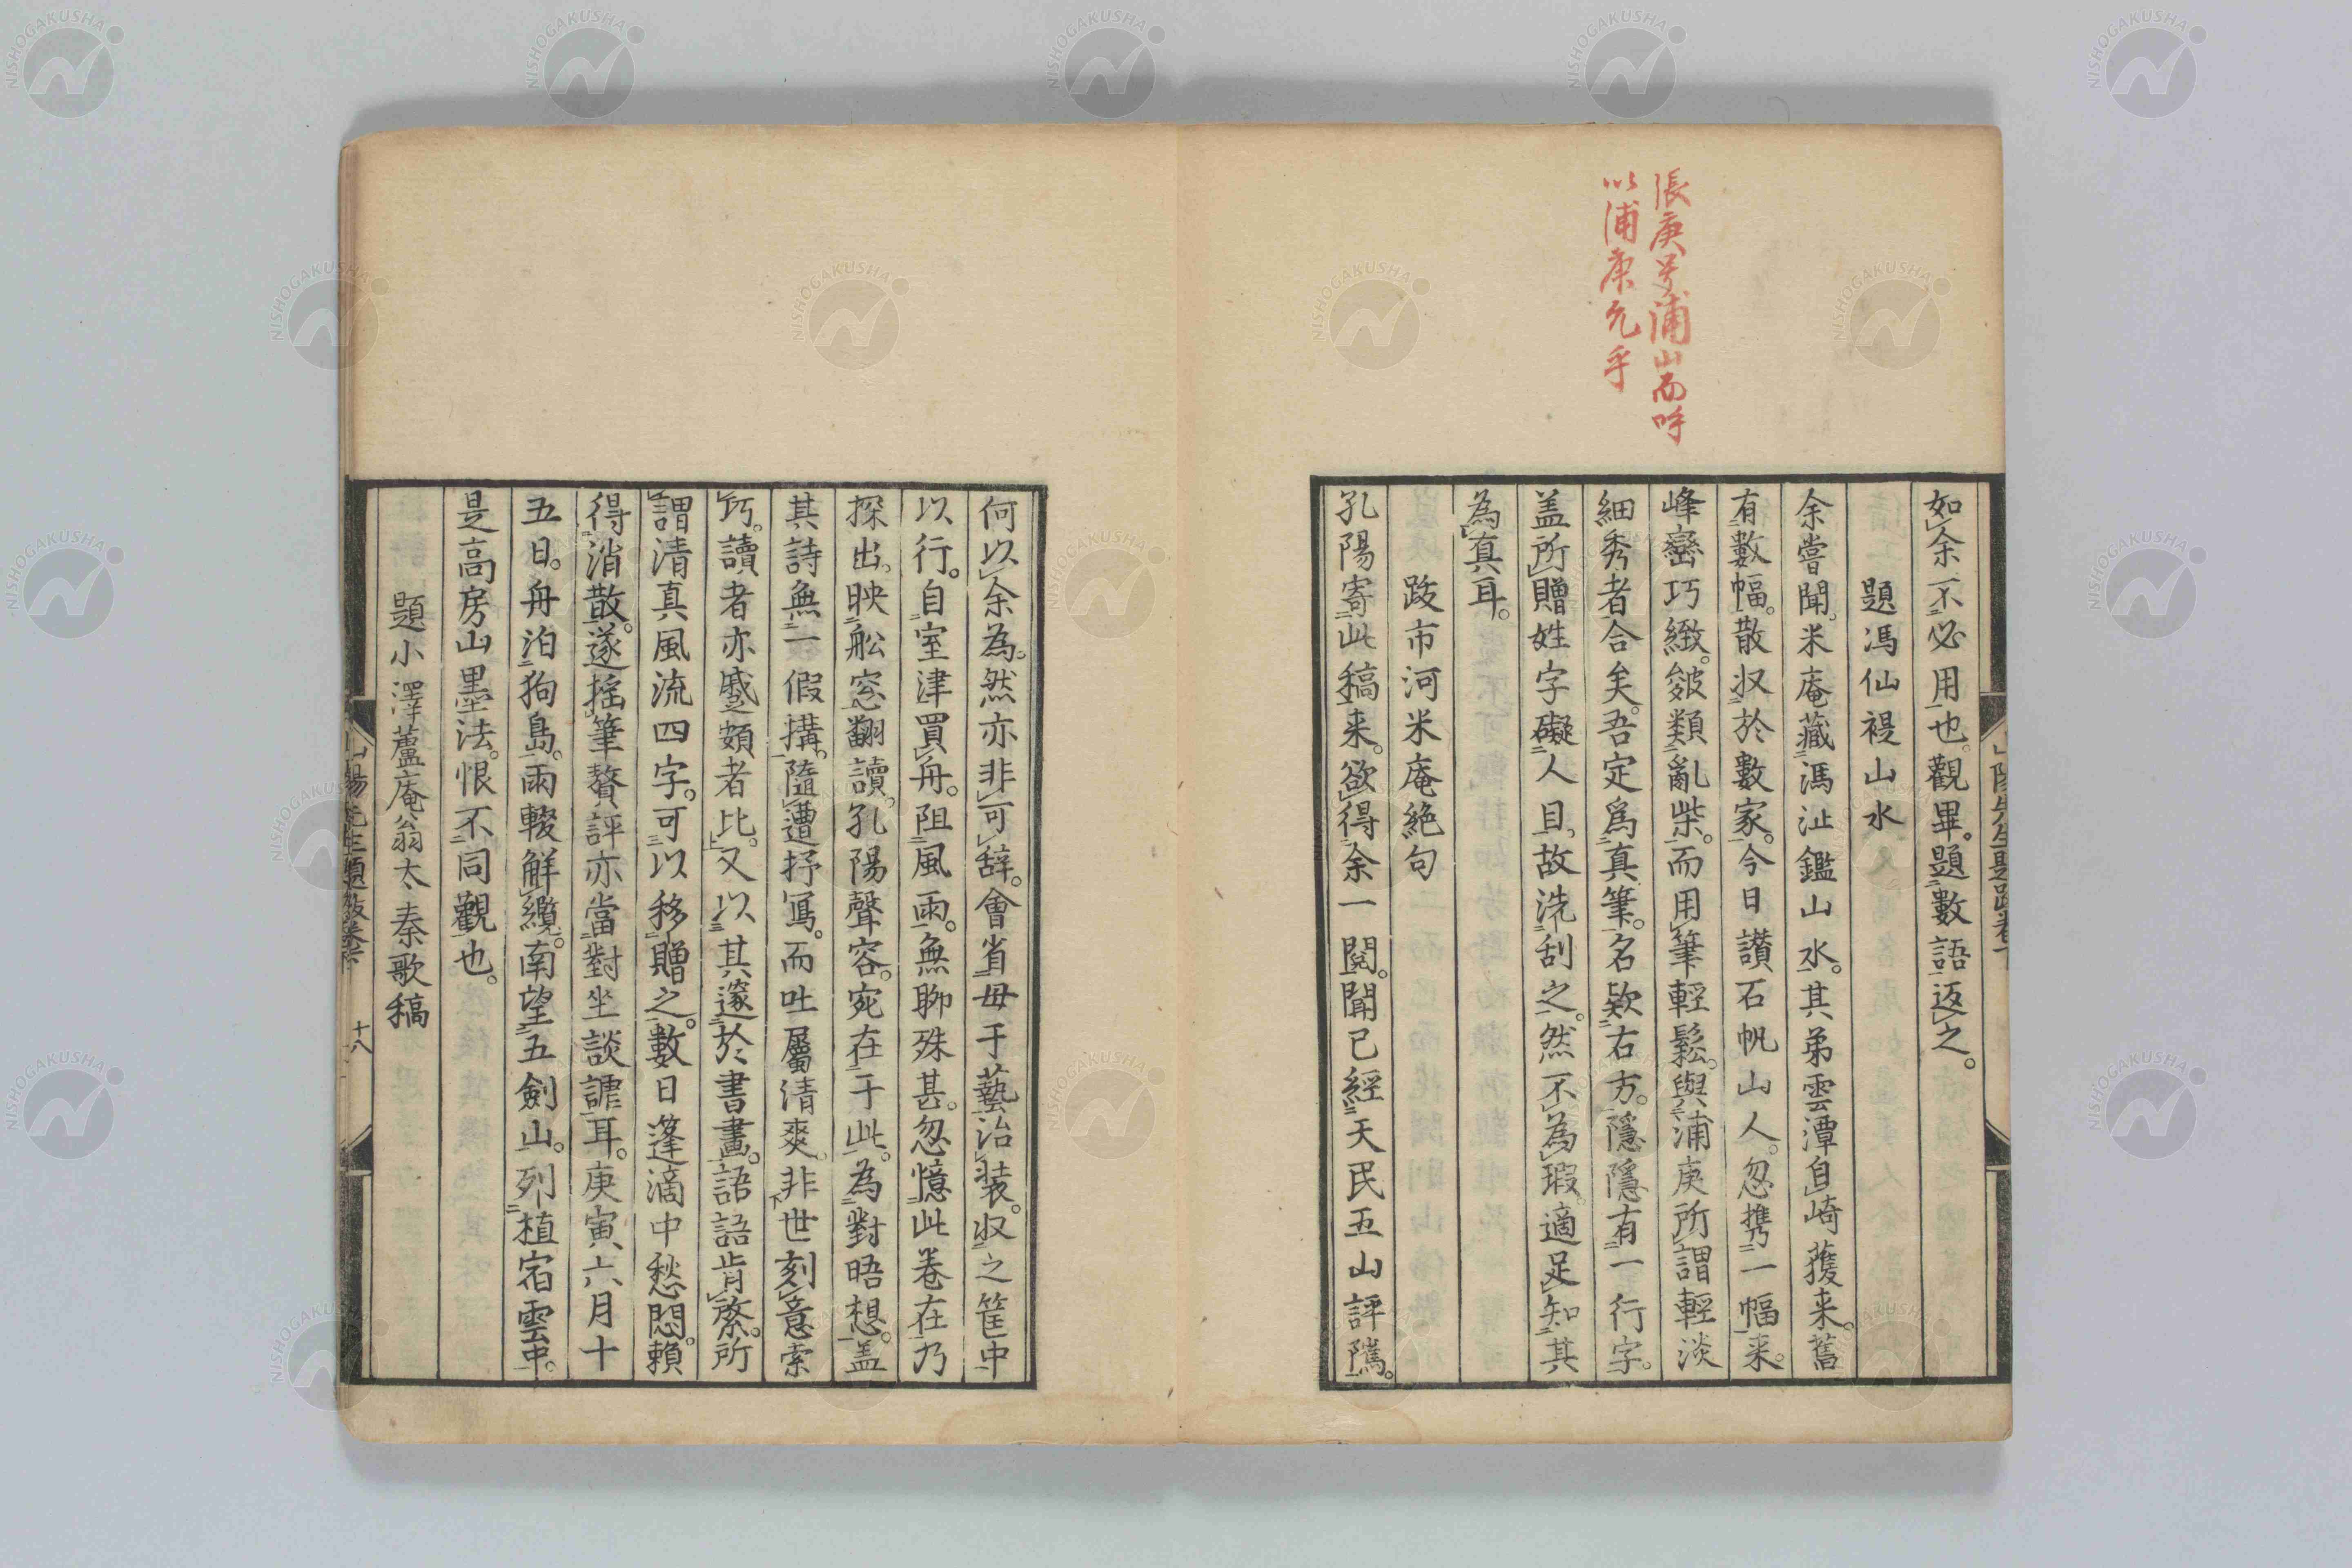 張庚号浦山而呼
以浦庚允乎
如余不必用也。觀畢。題數語返之。
題馮仙禔山水
余嘗聞。米庵藏馮沚鑑山水。其弟雲潭自崎獲来。舊
有數幅。散収於數家。今日讃石帆山人。忽携一幅来。
峰巒巧緻。皴類亂柴。而用筆輕鬆。與浦庚所謂輕淡
細秀者合矣。吾定爲真筆。名欵右方。隱隱有一行字。
盖所贈姓字礙人目。故洗刮之。然不為瑕。適足知其
為真耳。
跋市河米庵絶句
孔陽寄此稿来。欲得余一閲。聞已經天民五山評隲。
何以余為。然亦非可辞。會省母于藝治装。収之筐中
以行。自室津買舟。阻風雨。無聊殊甚。忽憶此巻在乃
探出。映舩窓翻讀。孔陽聲容。宛在于此。為對晤想。盖
其詩無一假搆。隨遭抒冩。而吐屬清爽。非世刻意索
巧。讀者亦蹙頞者比。又以其邃於書畫。語語肯綮。所
謂清真風流四字。可以移贈之。數日篷滴中愁悶。賴
得消散。遂搖筆贅評亦當對坐談謔耳。庚寅六月十
五日。舟泊狗島。雨輟解纜。南望五劍山。列植宿雲中。
是高房山墨法。恨不同觀也。
題小澤蘆庵翁太秦歌稿
山陽先生題跋卷下
十八